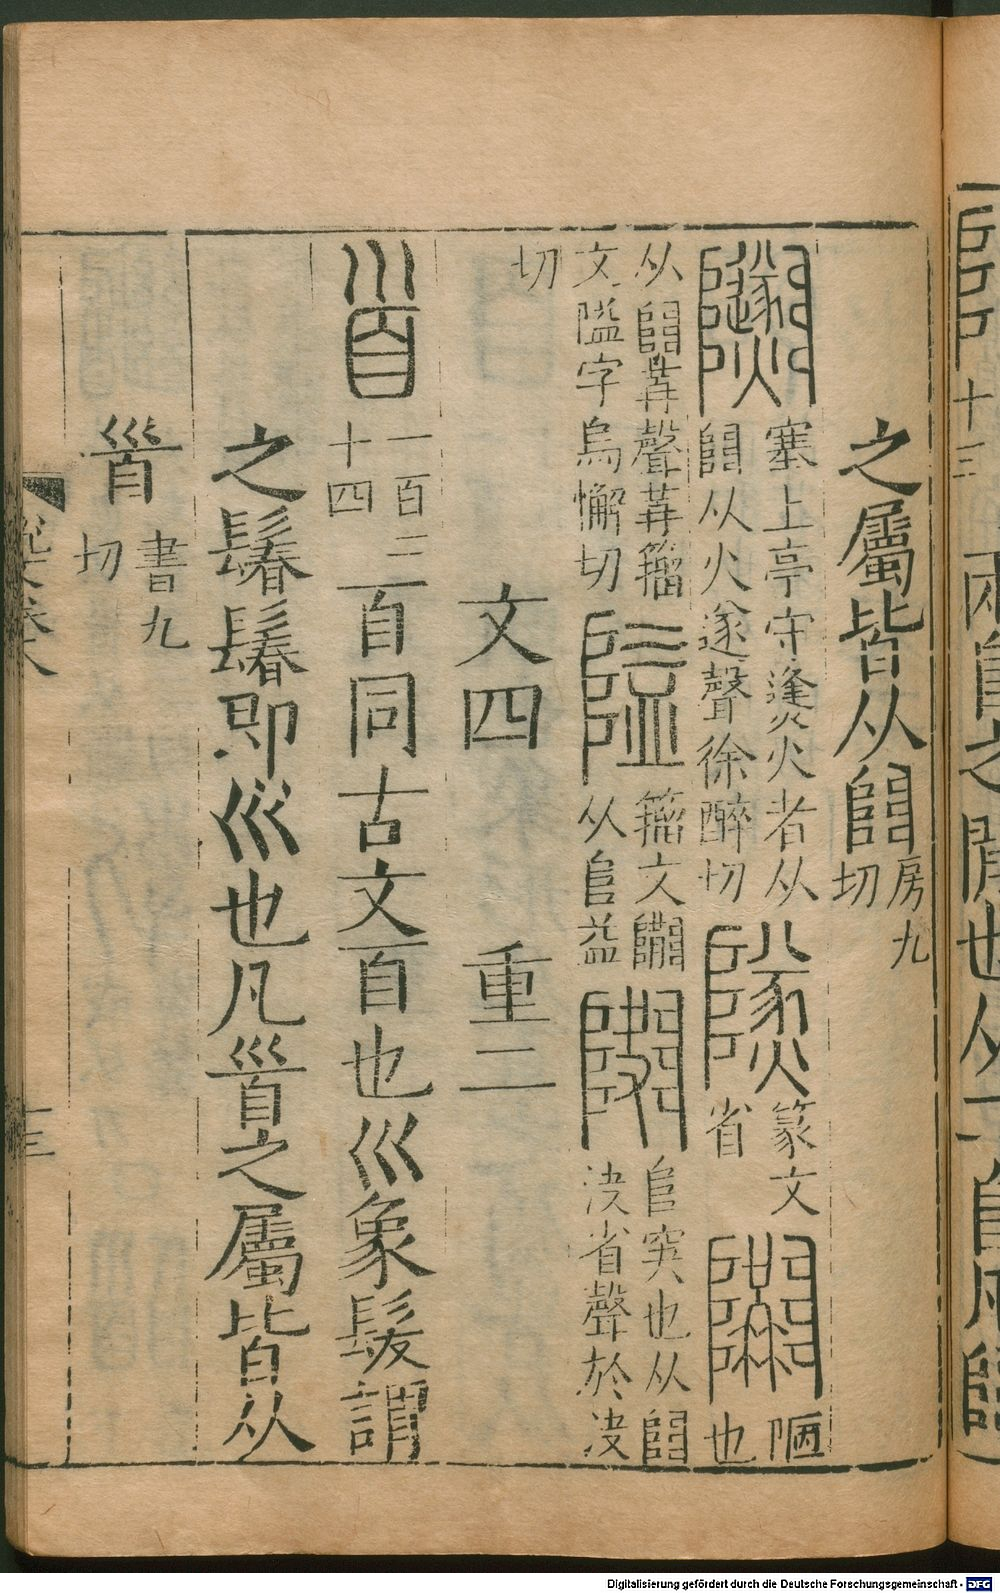 十三 兩𨸏之閒也从二𨸏凡𨺅
之屬皆从𨺅
房九
切
塞上亭守㷭火者从
𨺅从火遂聲徐醉切
篆文
省
陋
也
从𨺅𦶪聲𦶪籒
文隘字烏懈切
籒文𨽶
从𨸏益
𨸏突也从𨺅
决省聲於决
切
文四 重二
𩠐
一百二
十四
𦣻同古文𦣻也巛象髮謂
之鬊鬊即巛也凡𩠐之屬皆从
𩠐
書九
切
十三
Digitalisierung gefördert durch die Deutsche Forschungsgemeinschaft - DFG